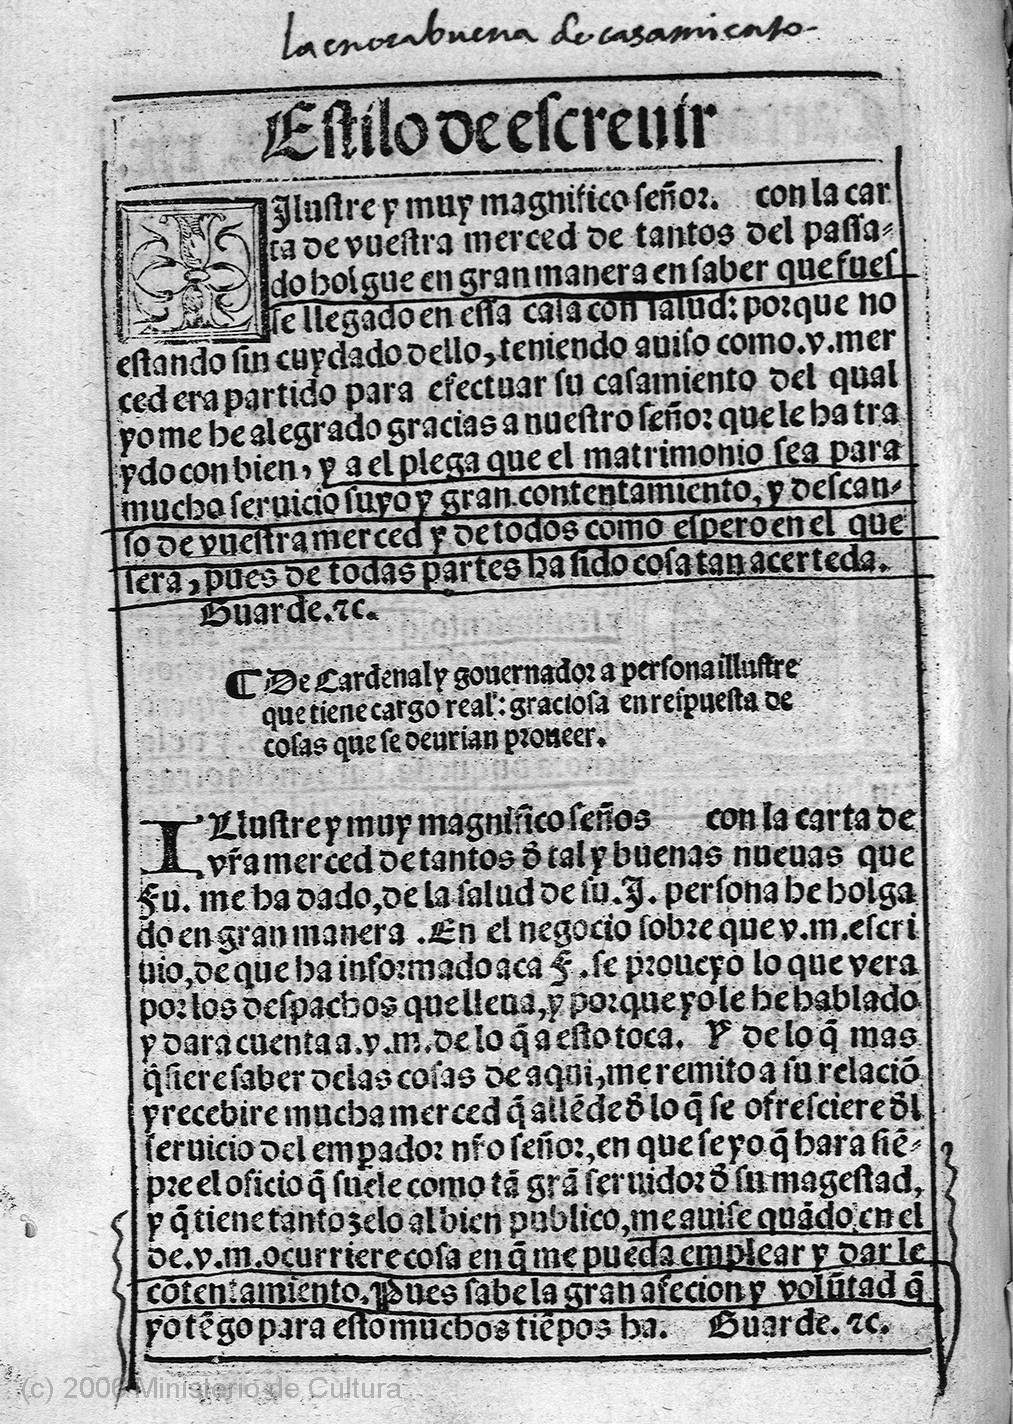 la enorabuena de casamiento.
Estilo de escreuir
Jlustre y muy magnifico señor. con la car
ta de vuestra merced de tantos del passa-
do holgue en gran manera en saber que fues
se llegado en essa casa con salud: porque no
estando sin cuydado dello, teniendo auiso como .v. mer
ced era partido para efectuar su casamiento del qual
yo me he alegrado gracias a nuestro señor que le ha tra
ydo con bien, y a el plega que el matrimonio sea para
mucho seruicio suyo y gran contentamiento, y descan-
so de vuestra merced y de todos como espero en el que
sera, pues de todas partes ha sido cosa tan acerteda.
Guarde. ⁊c.
¶ De Cardenal y gouernador a persona illustre
que tiene cargo real: graciosa en respuesta de
cosas que se deurian proueer.
ILlustre y muy magnifico señor con la carta de
vr̃a merced de tantos d̃ tal y buenas nueuas que
Fu. me ha dado, de la salud de su. J. persona he holga
do en gran manera. En el negocio sobre que v.m. escri
uio, de que ha informado aca F. se proueyo lo que vera
por los despachos que lleua, y porque yo le he hablado
y dara cuenta a.v.m. de lo q̃ a esto toca. Y de lo q̃ mas
q̃siere saber delas cosas de aqui, me remito a su relaciõ
y recebire mucha merced q̃ allẽde d̃ lo q̃ se ofresciere d̃l
seruicio del emp̱ador nr̃o señor, en que se yo q̃ hara siẽ-
pre el oficio q̃ suele como tã grã seruidor d̃ su magestad,
y q̃ tiene tanto zelo al bien publico, me auise quãdo en el
de.v.m. ocurriere cosa en q̃ me pueda emplear y dar le
cõtentamiento. Pues sabe la gran afecion y volũtad q̃
yo tẽgo para esto muchos tiẽpos ha. Guarde. ⁊c.
(c) 2006 Ministerio de Cultura